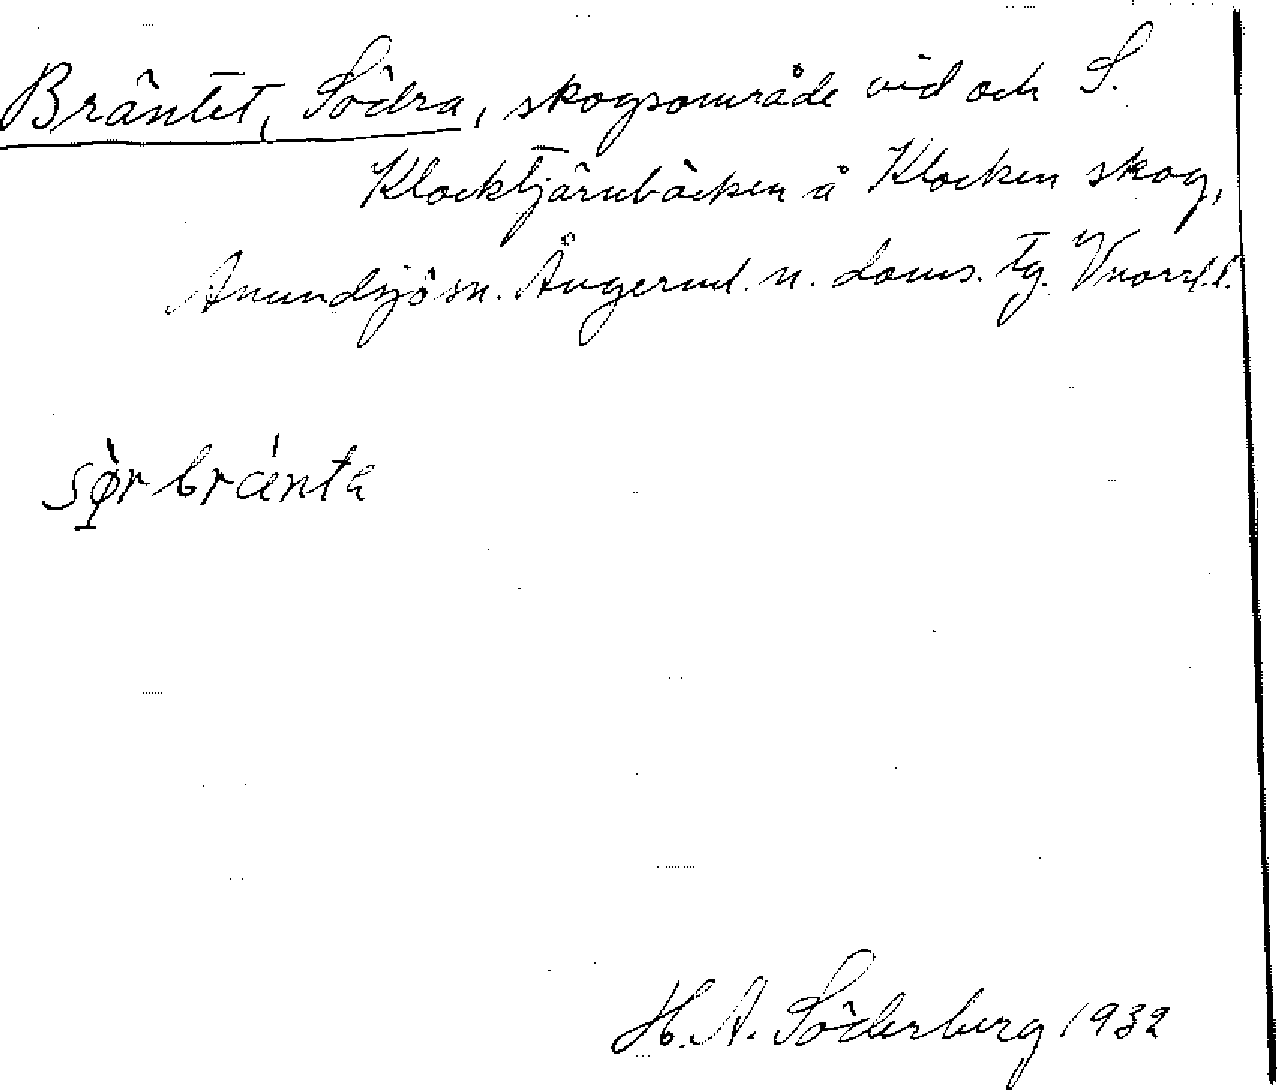 Bräntet, Södra, skogsområde vid och S.
Klocktjärnbäcken å Klocken skog,
Anundsjö sn. Ångerml. n. doms. tg. Vnorrl. l.
sør bränta
H. A. Söderberg 1932